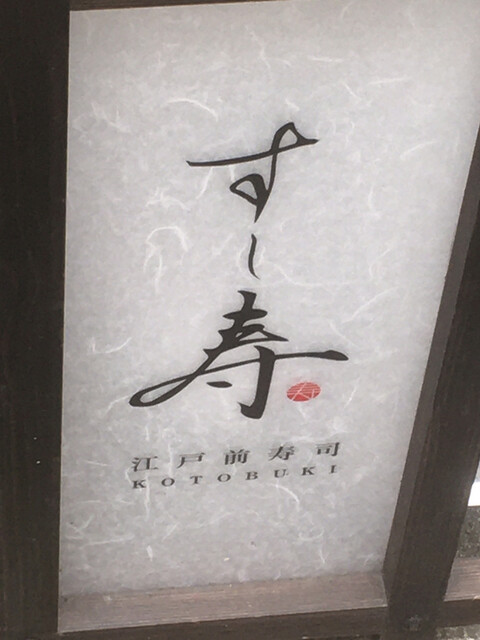 すし寿
江戸前寿司
KOTOBUKI